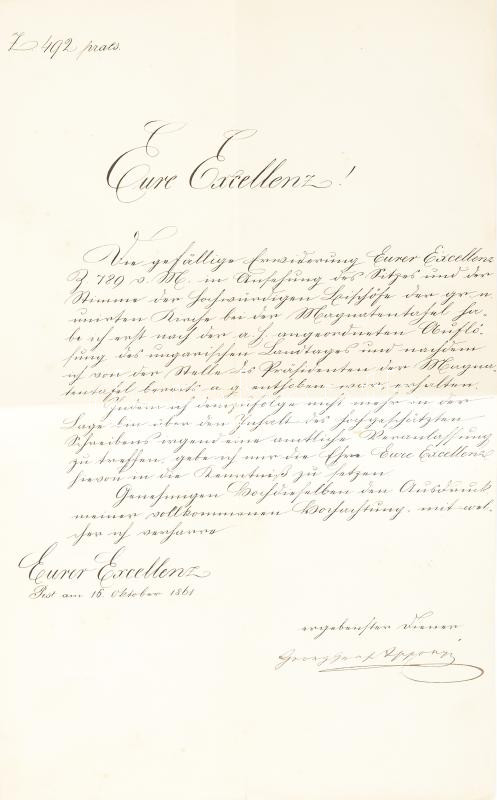 Z 492 praes.
Eure Excellenz!
Die gefällige Erwiderung Eurer Excellenz
Z 789 v. M. in Ansehung des Sitzes und der
Stimme der hochwürdigen Bischöfe der gr. n.
unirten Kirche bei der Magnatentafel ha-
be ich erst nach der a. h. angeordneten Auflö-
sung des ungarischen Landtages und nachdem
ich von der Stelle des Präsidenten der Magna-
tentafel bereits a. g. enthoben war, erhalten.
Indem ich demzufolge nicht mehr in der
Lage bin über den Inhalt des hochgeschätzten
Schreibens irgend eine amtliche Veranlassung
zu treffen, gebe ich mir die Ehre Eure Excellenz
hievon in die Kenntniß zu setzen.
Genehmigen Hochdieselben den Ausdruck
meiner vollkommenen Hochachtung, mit wel-
cher ich verharre
Eurer Excellenz
Pest am 16 Oktober 1861
ergebenster Diener
Georg Graf Apponyi